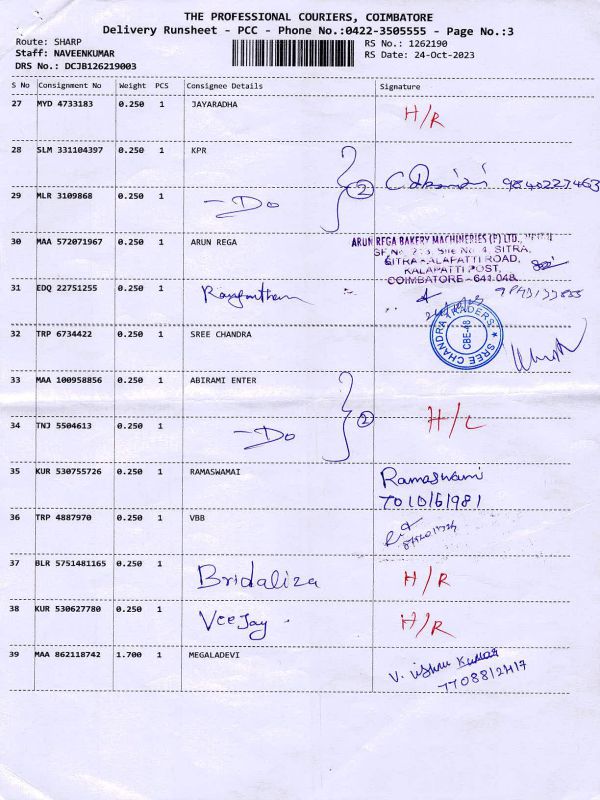 THE PROFESSIONAL COURIERS, COIMBATORE
Delivery Runsheet - PCC - Phone No.:0422-3505555 - Page No.:3
Route: SHARP
RS No.: 1262190
Staff: NAVEENKUMAR
RS Date: 24-Oct-2023
DRS No.: DCJB126219003
S No Consignment No Weight PCS Consignee Details Signature
27 MYD 4733183 0.250 1 JAYARADHA H/R
28 SLM 331104397 0.250 1 KPR
29 MLR 3109868 0.250 1 -Do 2 9840227463
30 MAA 572071967 0.250 1 ARUN REGA
ARUN REGA BAKERY MACHINERIES (P) LTD.,
SITRA KALAPATTI ROAD,
KALAPATTI POST,
COIMBATORE - 641 048.
31 EDQ 22751255 0.250 1
32 TRP 6734422 0.250 1 SREE CHANDRA
SREE CHANDRA TRADERS
CBE-48
33 MAA 100958856 0.250 1 ABIRAMI ENTER
34 TNJ 5504613 0.250 1 -Do 2 H/L
35 KUR 530755726 0.250 1 RAMASWAMAI Ramaswami
36 TRP 4887970 0.250 1 VBB
37 BLR 5751481165 0.250 1 Bridaliza H/R
38 KUR 530627780 0.250 1 VeeJay. H/R
39 MAA 862118742 1.700 1 MEGALADEVI V. Vishnu Kumar